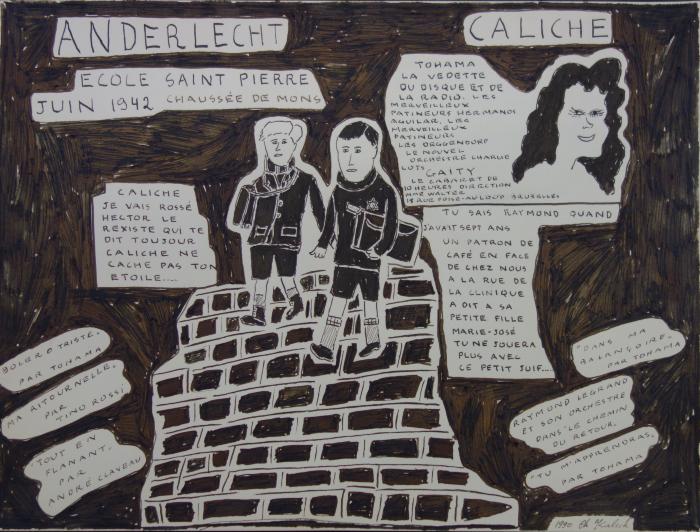 ANDERLECHT
CALICHE
ECOLE SAINT PIERRE
JUIN 1942 CHAUSSÉE DE MONS
TOHAMA
LA VEDETTE
DU DISQUE ET DE
LA RADIO. LES
MERVEILLEUX
PATINEURS HERMANOS
AGUILAR, LES
MERVEILLEUX
PATINEURS
LES DEGGENDORF
LE NOUVEL
ORCHESTRE CHARLIE
LOTS
GAITY
LE CABARET DE
10 HEURES DIRECTION
MME WALTER
18 RUE FOSSE-AU-LOUP BRUXELLES
CALICHE
JE VAIS ROSSÉ
HECTOR LE
REXISTE QUI TE
DIT TOUJOUR
CALICHE NE
CACHE PAS TON
ETOILE....
TU SAIS RAYMOND QUAND
J'AVAIT SEPT ANS
UN PATRON DE
CAFÉ EN FACE
DE CHEZ NOUS
A LA RUE DE
LA CLINIQUE
A DIT A SA
PETITE FILLE
MARIE-JOSÉ
TU NE JOUERA
PLUS AVEC
CE PETIT JUIF....
BOLERO TRISTE.
PAR TOHAMA
MA RITOURNELLE.
PAR
TINO ROSSI
TOUT EN
FLANANT.
PAR
ANDRÉ CLAVEAU
"DANS MA
BALANÇOIRE.
PAR TOHAMA
RAYMOND LEGRAND
ET SON ORCHESTRE
DANS LE CHEMIN
DU RETOUR.
"TU M'APPRENDRAS.
PAR TOHAMA
1990